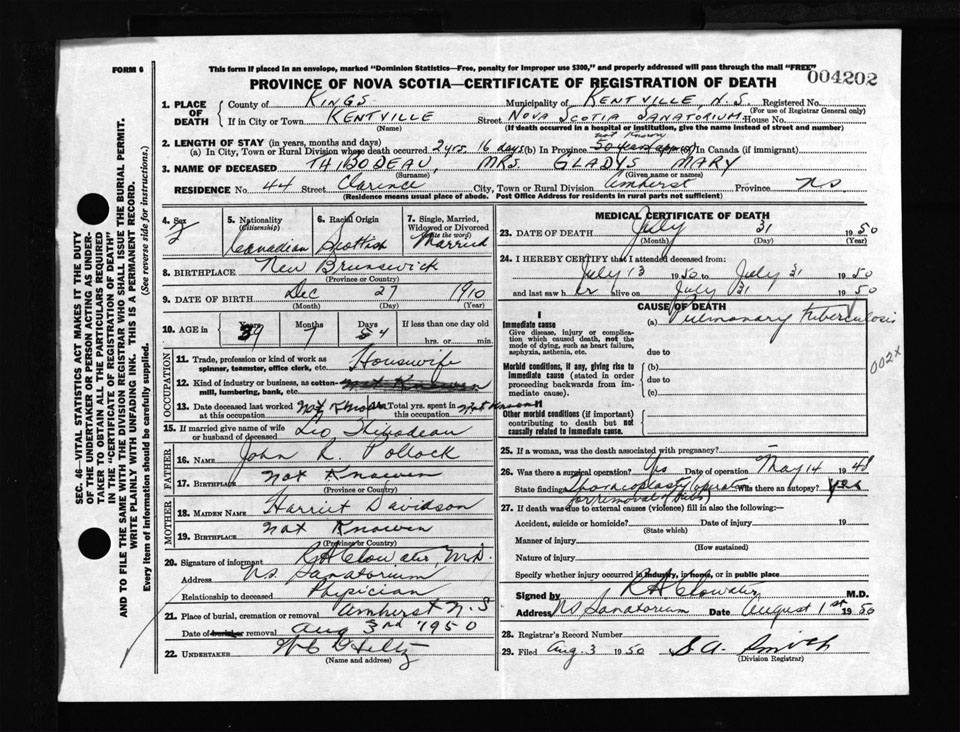 FORM 6
This form if placed in an envelope, marked "Dominion Statistics—Free, penalty for improper use $300," and properly addressed will pass through the mail "FREE"
PROVINCE OF NOVA SCOTIA—CERTIFICATE OF REGISTRATION OF DEATH
004202
SEC. 46—VITAL STATISTICS ACT MAKES IT THE DUTY
OF THE UNDERTAKER OR PERSON ACTING AS UNDER-
TAKER TO OBTAIN ALL THE PARTICULARS REQUIRED
IN THE "CERTIFICATE OF REGISTRATION OF DEATH"
AND TO FILE THE SAME WITH THE DIVISION REGISTRAR WHO SHALL ISSUE THE BURIAL PERMIT.
WRITE PLAINLY WITH UNFADING INK. THIS IS A PERMANENT RECORD.
Every item of Information should be carefully supplied. (See reverse side for instructions.)
1. PLACE OF DEATH
County of KINGS Municipality of KENTVILLE, N.S. Registered No.
(For use of Registrar General only)
If in City or Town KENTVILLE Street NOVA SCOTIA SANATORIUM House No.
(Name) (If death occurred in a hospital or institution, give the name instead of street and number)
2. LENGTH OF STAY (in years, months and days)
not known
(a) In City, Town or Rural Division where death occurred 2 yrs. 16 days (b) In Province 30 years approx (c) In Canada (if immigrant)
3. NAME OF DECEASED THIBODEAU, MRS. GLADYS MARY
(Surname) (Given name or names)
RESIDENCE No. 44 Street Clarence City, Town or Rural Division Amherst Province NS
(Residence means usual place of abode. Post Office Address for residents in rural parts not sufficient)
4. Sex
5. Nationality (Citizenship) Canadian
6. Racial Origin Scottish
7. Single, Married, Widowed or Divorced (write the word) Married
8. BIRTHPLACE New Brunswick
(Province or Country)
9. DATE OF BIRTH Dec 27 1910
(Month) (Day) (Year)
10. AGE in Years 39 Months 7 Days 4 If less than one day old
hrs. or min.
OCCUPATION
11. Trade, profession or kind of work as spinner, teamster, office clerk, etc. Housewife
12. Kind of industry or business, as cotton-mill, lumbering, bank, etc. not Knowen
13. Date deceased last worked at this occupation not Known Total yrs. spent in this occupation not Known
15. If married give name of wife or husband of deceased Leo Thibodeau
FATHER
16. NAME John R. Pollock
17. BIRTHPLACE not Knowen
(Province or Country)
MOTHER
18. MAIDEN NAME Harriet Davidson
19. BIRTHPLACE not Knowen
(Province or Country)
20. Signature of informant R A Clowater, M.D.
Address N.S. Sanatorium
Relationship to deceased Physician
21. Place of burial, cremation or removal Amherst N.S
Date of burial or removal Aug 3rd 1950
22. UNDERTAKER
(Name and address)
MEDICAL CERTIFICATE OF DEATH
23. DATE OF DEATH July 31 1950
(Month) (Day) (Year)
24. I HEREBY CERTIFY that I attended deceased from:
July 13 1950 to July 31 1950
and last saw her alive on July 31 1950
CAUSE OF DEATH
I
Immediate cause
Give disease, injury or complication which caused death, not the mode of dying, such as heart failure, asphyxia, asthenia, etc.
(a) Pulmonary Tuberculosis
due to
002X
Morbid conditions, if any, giving rise to immediate cause (stated in order proceeding backwards from immediate cause).
(b)
due to
(c)
II
Other morbid conditions (if important) contributing to death but not causally related to immediate cause.
25. If a woman, was the death associated with pregnancy?
26. Was there a surgical operation? Yes Date of operation May 14 1948
State findings Thoracoplasty operat Was there an autopsy? Yes
for removal of ribs
27. If death was due to external causes (violence) fill in also the following:—
Accident, suicide or homicide? Date of injury 19
(State which)
Manner of injury
(How sustained)
Nature of injury
Specify whether injury occurred in industry, in home, or in public place
Signed by R A Clowater M.D.
Address NS Sanatorium Date August 1st 1950
28. Registrar's Record Number
29. Filed Aug. 3 1950 S A. Smith
(Division Registrar)